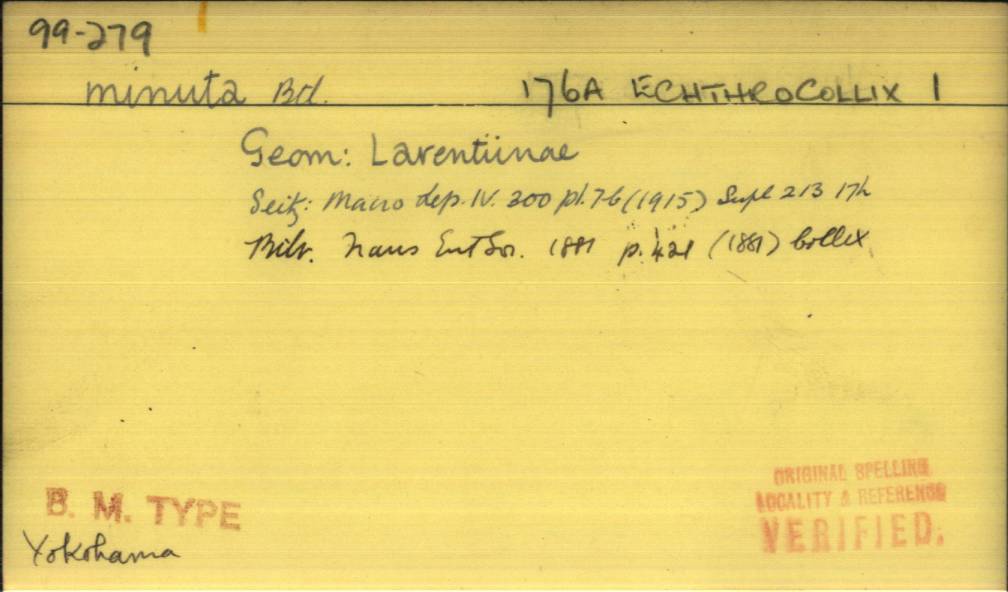 99-279
minuta Btl. 176A ECHTHROCOLLIX 1
Geom: Larentiinae
Seitz: Macro Lep. IV. 300 pl. 7-b (1915) Supl 213 17h
Btlr. Trans Ent Soc. 1881 p. 421 (1881) Collix
B. M. TYPE
Yokohama
ORIGINAL SPELLING
LOCALITY & REFERENCE
VERIFIED.